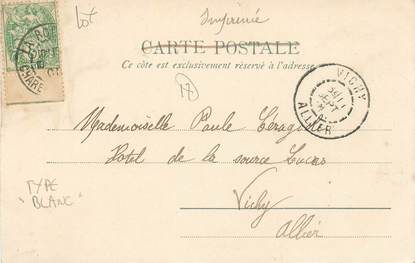 lot
Imprimé
CARTE POSTALE
Ce côté est exclusivement réservé à l'adresse
VICHY
ALLIER
Mademoiselle Paule
Hotel de la source Lucas
Vichy
Allier
TYPE
"BLANC"